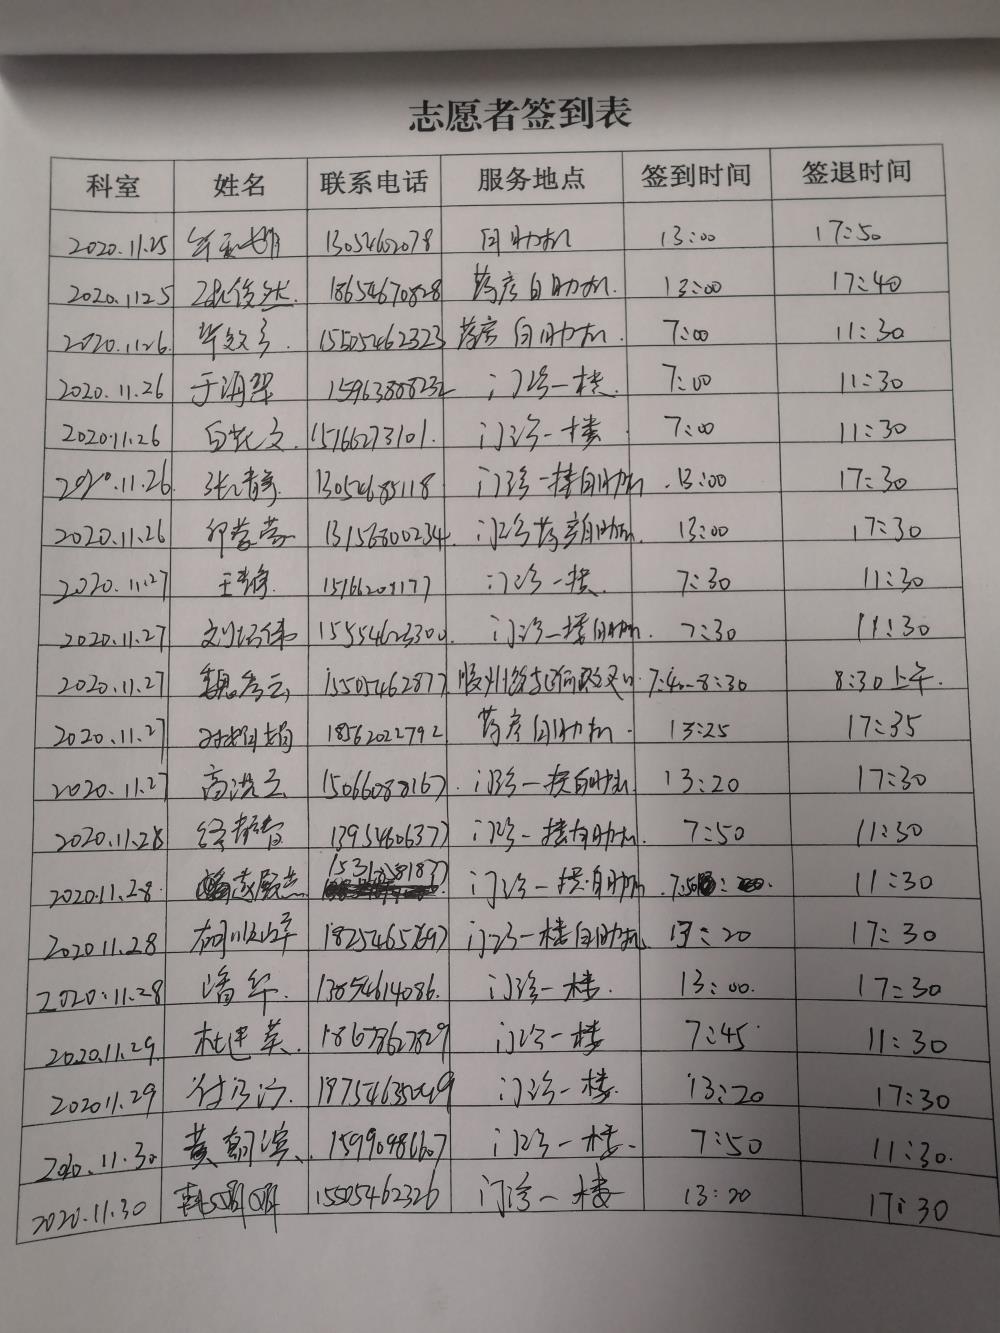 志愿者签到表
科室 姓名 联系电话 服务地点 签到时间 签退时间
2020.11.25 13054602078 自助机 13:00 17:50
2020.1125 张俊然 18654670828 药房自助机. 13:00 17:40
2020.11.26. 15505462323 药房自助机. 7:00 11:30
2020.11.26 于海翠 15963808232 门诊一楼. 7:00 11:30
2020.11.26 15766273101. 门诊一楼 7:00 11:30
2020.11.26 张静 13054685118 门诊一楼自助机 13:00 17:30
2020.11.26 13156800234. 门诊药房自助机. 13:00 17:30
2020.11.27 王静 门诊一楼. 7:30 11:30
2020.11.27 门诊一楼自助机. 7:30 11:30
2020.11.27 15505462877 7:40-8:30 8:30上午.
2020.11.27 18562022792 药房自助机. 13:25 17:35
2020.11.27 高洪云 15066088167. 门诊一楼自助机. 13:20 17:30
2020.11.28 13954606377 门诊一楼自助机. 7:50 11:30
2020.11.28. 门诊一楼自助机. 11:30
2020 11.28 门诊一楼自助机. 13:20 17:30
2020.11.28 潘华. 13054614086. 门诊一楼. 13:00. 17:30
2020.11.29. 杜建英. 18678627829 门诊一楼 7:45 11:30
2020 11.29 门诊一楼. 13:20 17:30
2020.11.30 黄朝滨. 15990986607 门诊一楼. 7:50 11:30.
2020.11.30 韩明明 15505462326 门诊一楼 13:20 17:30